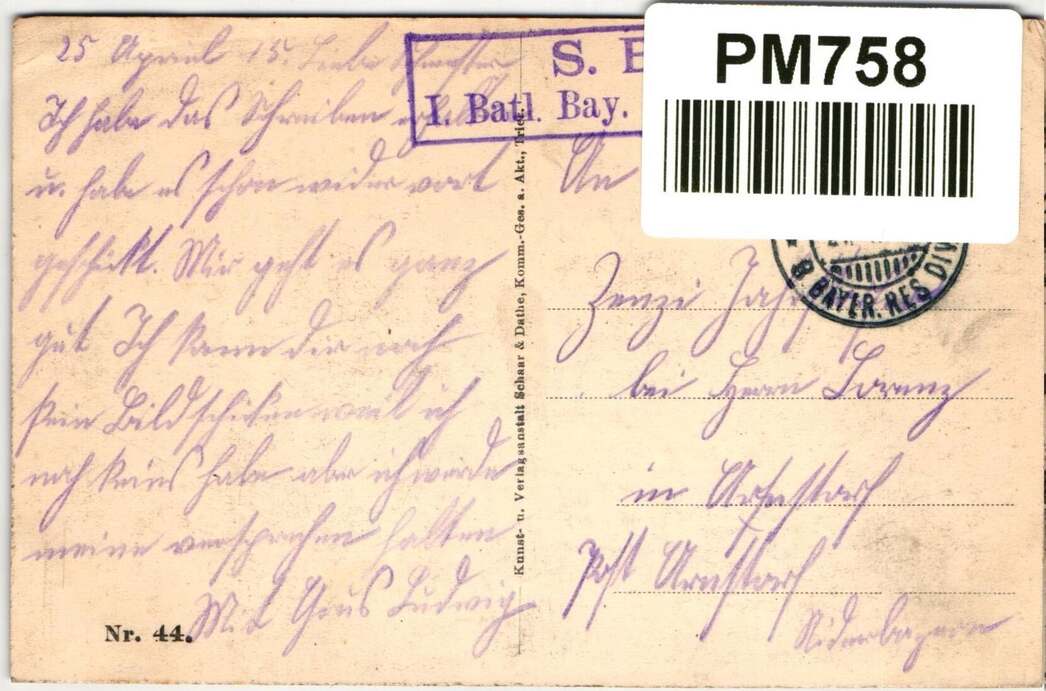 25 Aprill 15. Liebe Schwester
Ich habe das Schreiben erhalten
u. habe es schon wider vort
geschickt. Mir geht es ganz
gut Ich kann dir noch
kein Bild schicken weil ich
noch keins habe aber ich werde
meine versprechen halten
M. L. Grus Ludwig
Nr. 44.
Kunst- u. Verlagsanstalt Schaar & Dathe, Komm.-Ges. a. Akt., Trier.
S. B
I. Batl. Bay.
PM758
8. BAYER. RES. DIV
An
Zenzi
bei Herrn Lorenz
in Arnstorf
Post Arnstorf
Niderbayern